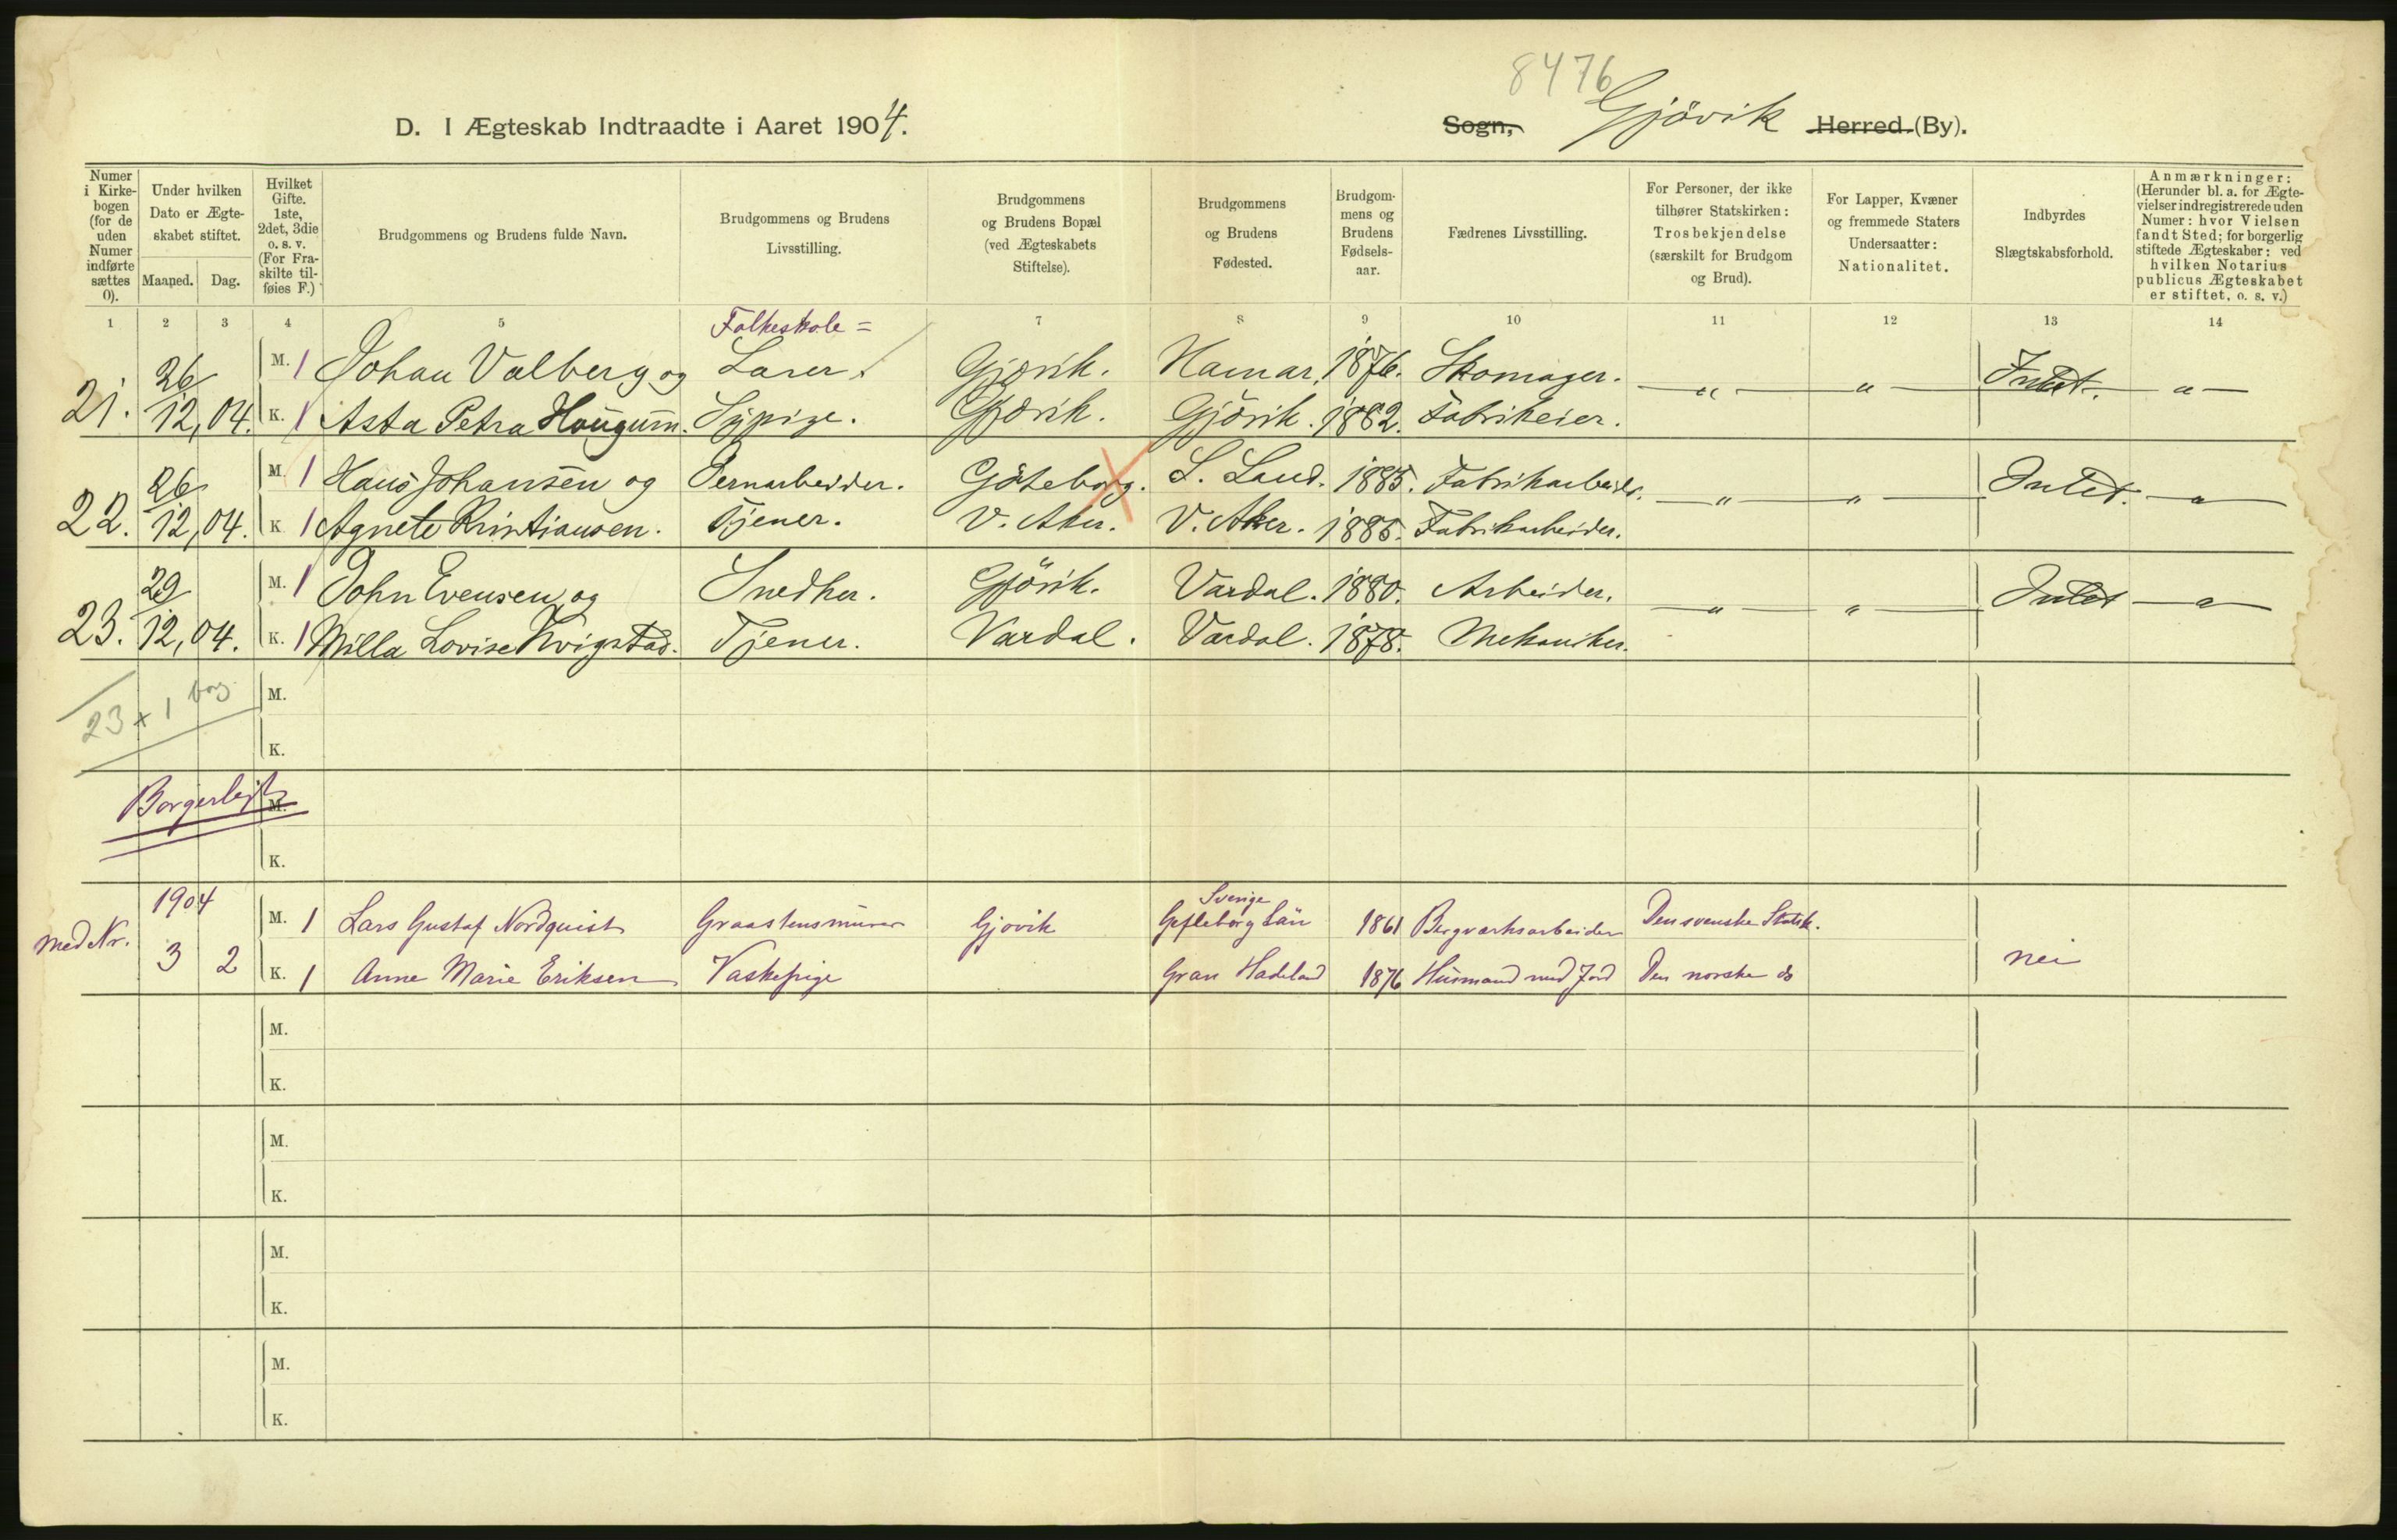 8476
D. I Ægteskab Indtraadte i Aaret 1904.
Sogn, Gjövik Herred (By).
Numer i Kirkebogen (for de uden Numer indførte sættes 0).
Under hvilken Dato er Ægteskabet stiftet.
Maaned. Dag.
Hvilket Gifte. 1ste, 2det, 3die o. s. v. (For Fraskilte tilføies F.)
Brudgommens og Brudens fulde Navn.
Brudgommens og Brudens Livsstilling.
Brudgommens og Brudens Bopæl (ved Ægteskabets Stiftelse).
Brudgommens og Brudens Fødested.
Brudgommens og Brudens Fødselsaar.
Fædrenes Livsstilling.
For Personer, der ikke tilhører Statskirken: Trosbekjendelse (særskilt for Brudgom og Brud).
For Lapper, Kvæner og fremmede Staters Undersaatter: Nationalitet.
Indbyrdes Slægtskabsforhold.
Anmærkninger: (Herunder bl. a. for Ægtevielser indregistrerede uden Numer: hvor Vielsen fandt Sted; for borgerlig stiftede Ægteskaber: ved hvilken Notarius publicus Ægteskabet er stiftet, o. s. v.)
1 2 3 4 5 7 8 9 10 11 12 13 14
Folkeskole=
21. 26/12, 04. M. 1 Johan Valberg og Lærer. Gjövik. Hamar. 1876. Skomager. — „ — „ — Intet. — „ —
K. 1 Asta Petra Haugum. Sypige. Gjövik. Gjövik. 1882. Fabrikeier.
22. 26/12, 04. M. 1 Hans Johansen og Jernarbeider. Göteborg. S. Land. 1885. Fabrikarbeider. — „ — „ — Intet. — „ —
K. 1 Agnete Kristiansen. Tjener. V. Aker. V. Aker. 1885. Fabrikarbeider.
23. 29/12, 04. M. 1 John Evensen og Snedker. Gjövik. Vardal. 1880. Arbeider. — „ — „ — Intet — „ —
K. 1 Milla Lovise Kvigstad. Tjener. Vardal. Vardal. 1878. Mekaniker.
23 + 1 borg.
M.
K.
Borgerligt M.
K.
Med Nr. 1904 3 2 M. 1 Lars Gustaf Nordquist Graastensmurer Gjovik Sverige Gefleborg Län 1861 Bergværksarbeider Den svenske Statsk.
K. 1 Anne Marie Eriksen Vaskepige Gran Hadeland 1876 Husmand med Jord Den norske do nei
M.
K.
M.
K.
M.
K.
M.
K.